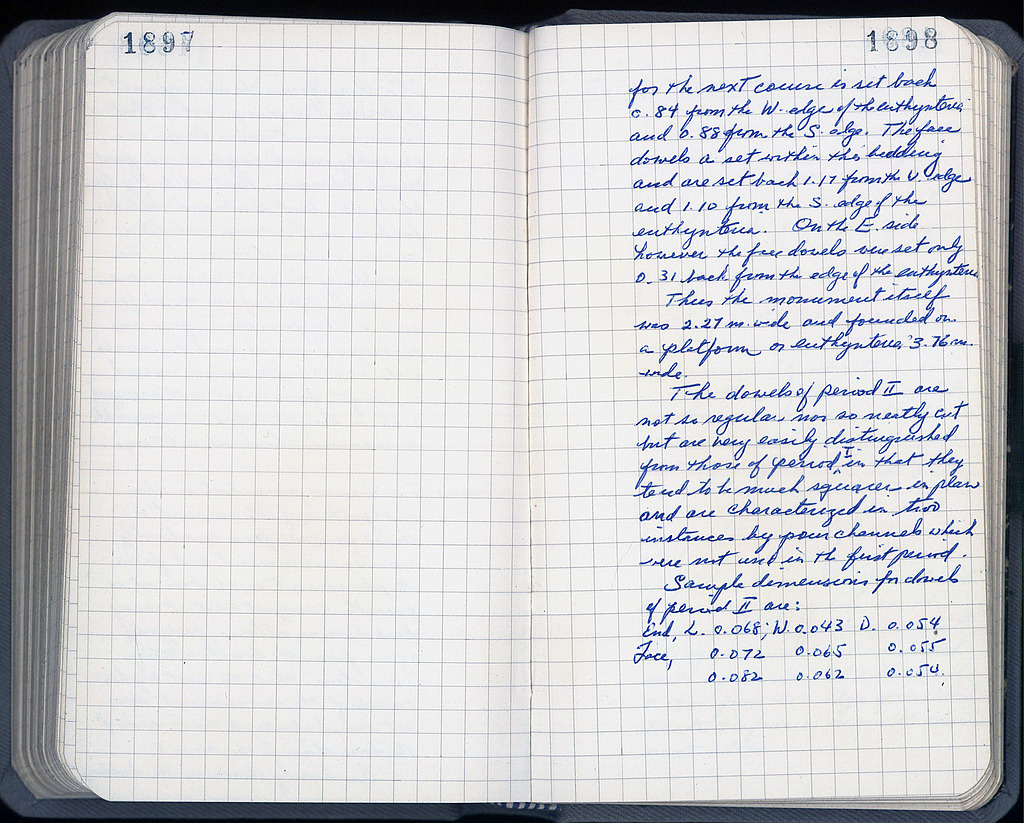 1897
1898
for the next course is set back
0.84 from the W. edge of the euthynteria
and 0.88 from the S. edge. The face
dowels a set within this bedding
and are set back 1.17 from the edge
and 1.10 from the S. edge of the
euthynteria. On the E. side
however the face dowels were set only
0.31 back from the edge of the euthynteria
Thus the monument itself
was 2.27 m. wide and founded on
a platform or euthynteria 3.76 m.
wide.
The dowels of period II are
not so regular nor so neatly cut
but are very easily distinguished
from those of period I in that they
tend to be much squarer in plan
and are characterized in two
instances by pour channels which
were not used in the first period.
Sample dimensions for dowels
of period II are:
End, L. 0.068; W. 0.043 D. 0.054
Face, 0.072 0.065 0.055
0.082 0.062